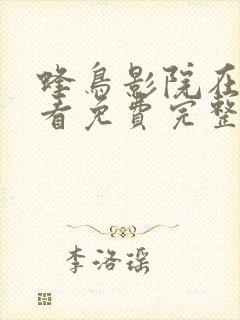 蜂鸟影院在
看免费完整
李洛瑶